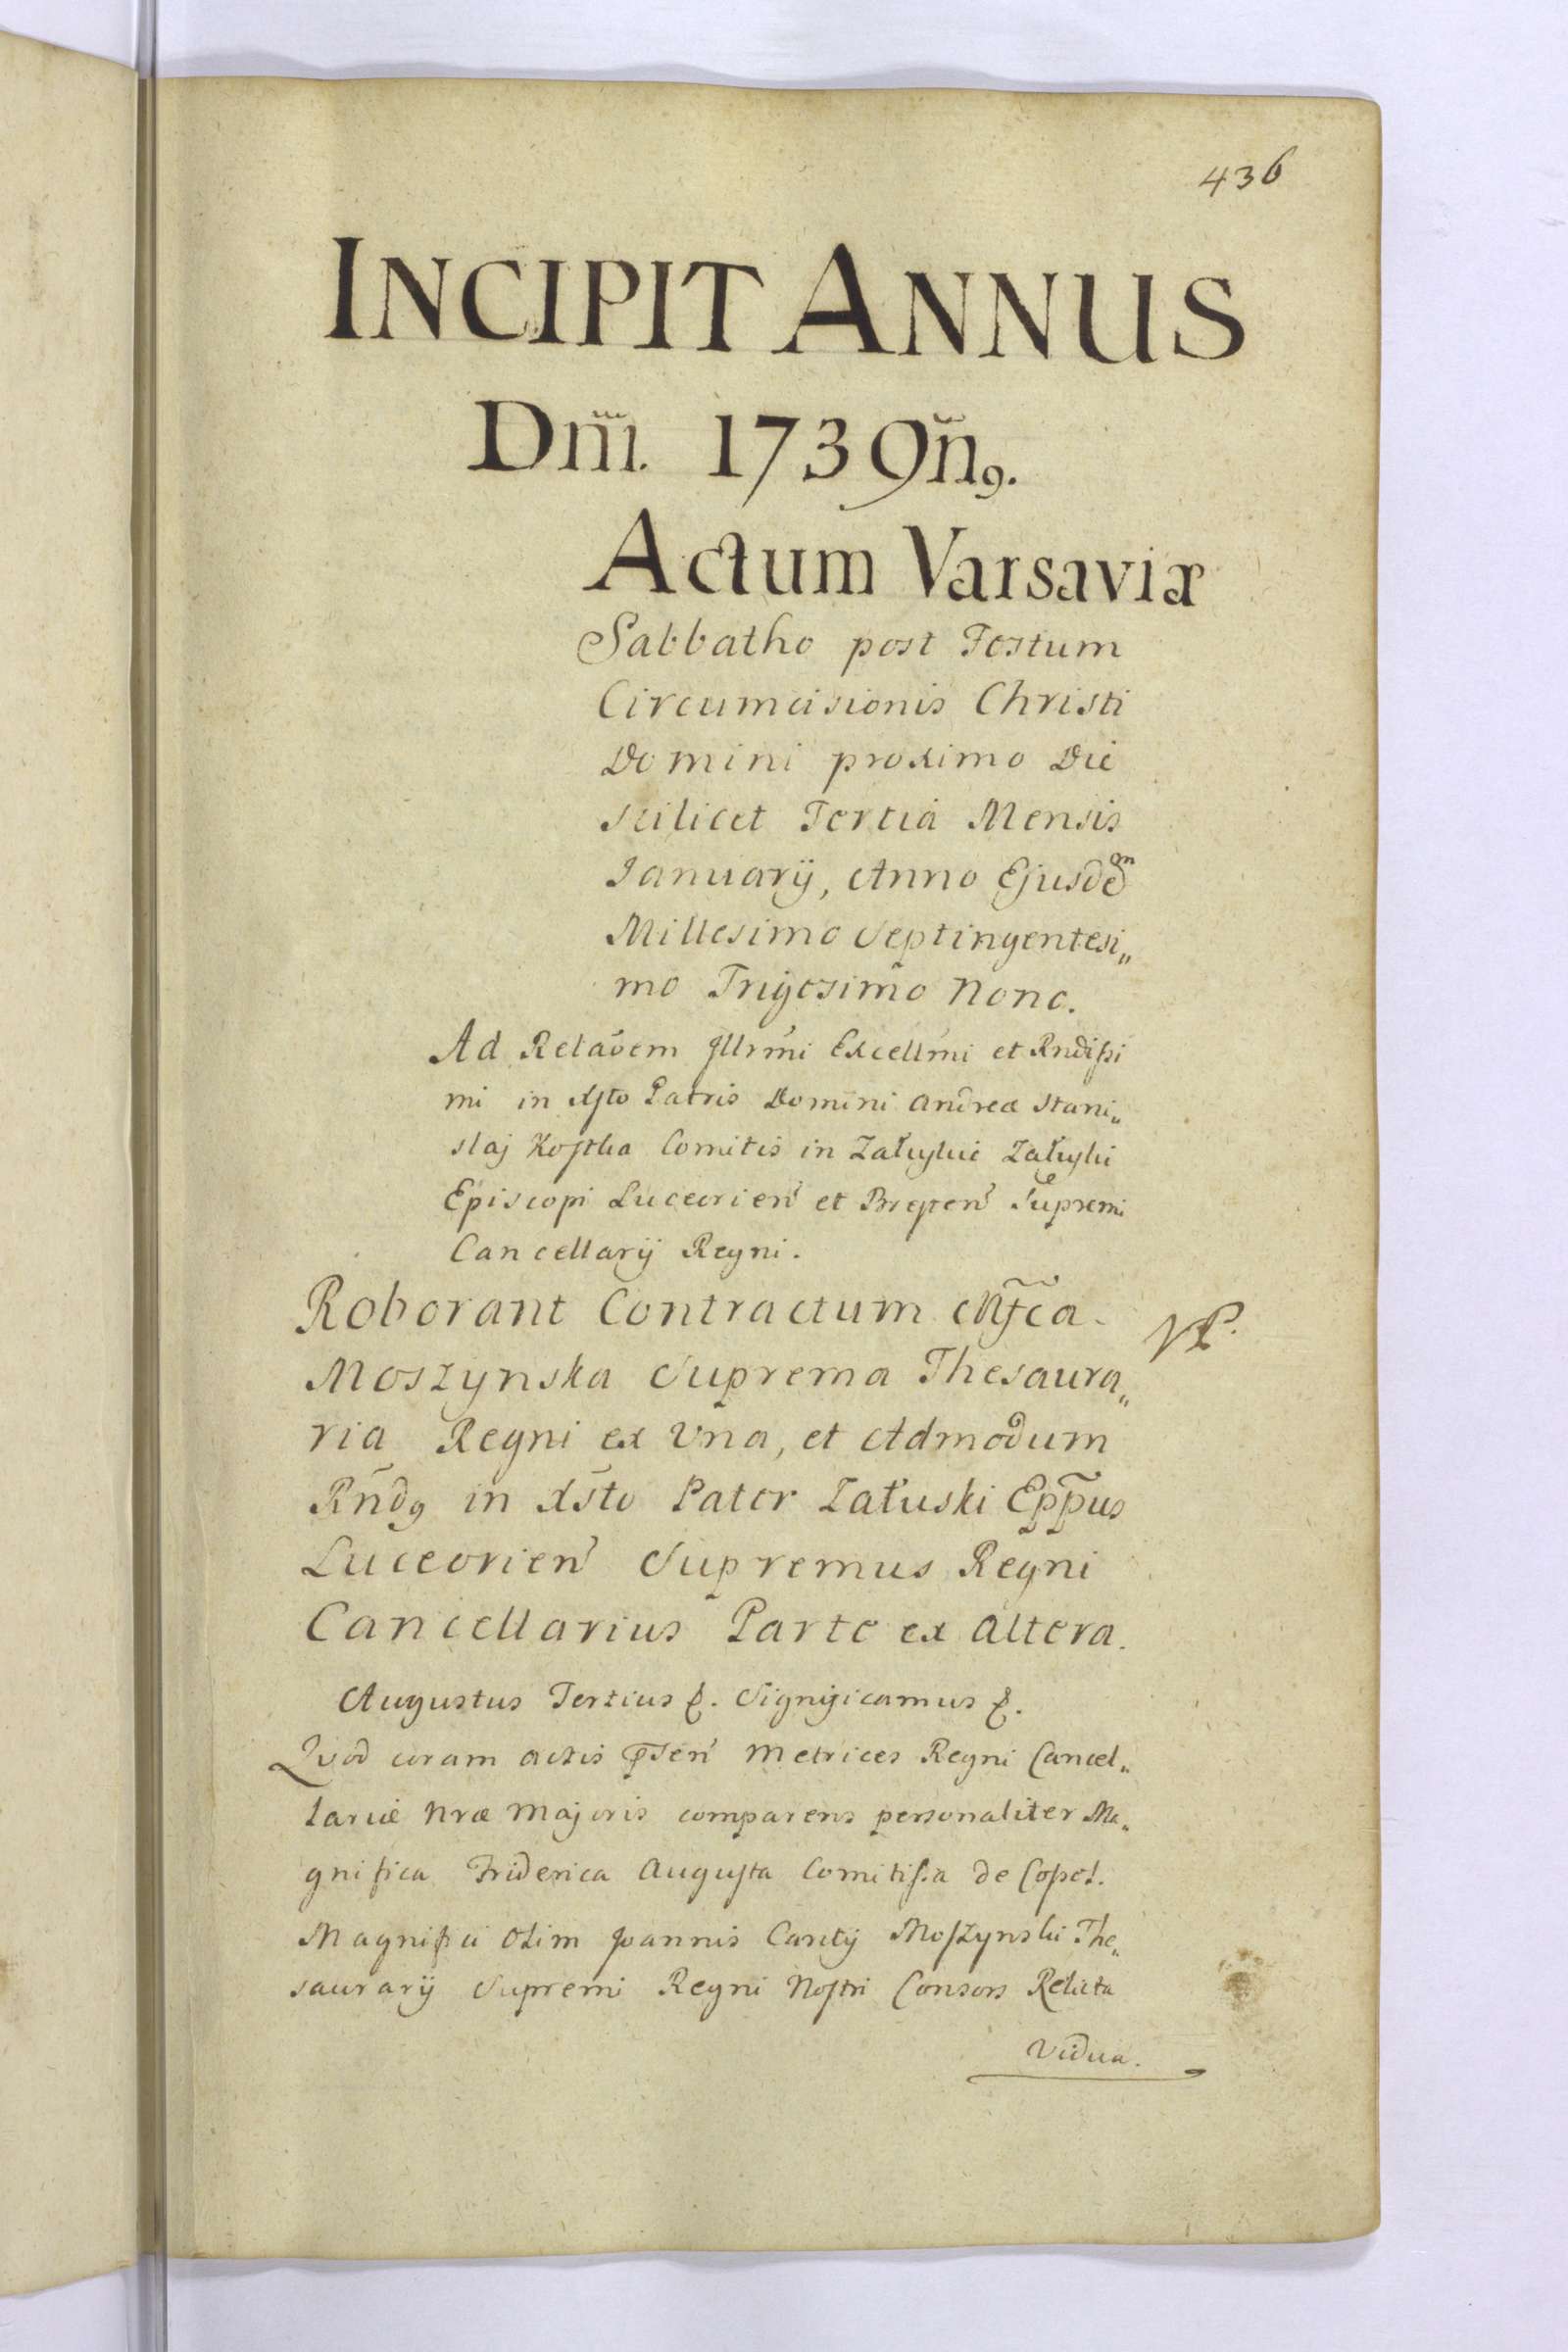 436
INCIPIT ANNUS
Dm̃i. 1739ñ9.
Actum Varsaviæ
Sabbatho post Festum
Circumcisionis Christi
Domini proximo Die
scilicet Tertia Mensis
January̆, Anno Ejusdem
Millesimo Septingentesi„
mo Trigesimo Nono.
Ad Relaõem Jllrm̃i Excellm̃i et Rndissi
mi in Xsto Patris Domini Andreæ Stani„
slaj Kostka Comitis in Załuskie Załuski
Episcopi Luceorien̄ et Bresten̄ Supremi
Cancellarÿ Regni.
Roborant Contractum Mf̃ca
Moszynska Suprema Thesaura„
ria Regni ex Una, et Admodum
Rñd9 in Xs̃to Pater Załuski Epp̃us
Luceorien̄ Supremus Regni
Cancellarius Parte ex Altera.
Augustus Tertius &. Significamus &.
Quod coram Actis p̃sen̄ Metrices Regni Cancel„
lariæ Nræ Majoris comparens personaliter Ma„
gnifica Friderica Augusta Comitissa de Cosel.
Magnifici Olim Joannis Cantÿ Moszynski The„
saurarÿ Supremi Regni Nostri Consors Relicta
Vidua.